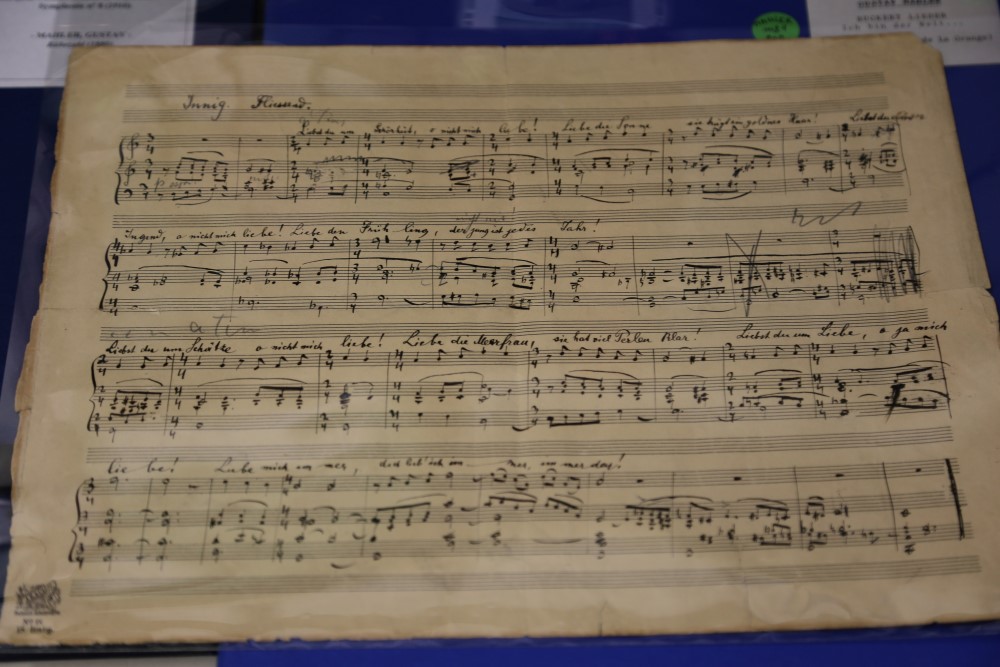 Symphonie n° 8
- MAHLER, GUSTAV -
GUSTAV MAHLER
RUCKERT LIEDER
Ich bin der Welt...
de la Grange)
Innig. Fliessend.
Liebst du um Schönheit, o nicht mich liebe! Liebe die Sonne sie trägt ein goldnes Haar! Liebst du um
Jugend, o nicht mich liebe! Liebe den Frühling, der jung ist jedes Jahr!
Liebst du um Schätze o nicht mich liebe! Liebe die Meerfrau, sie hat viel Perlen klar! Liebst du um Liebe, o ja mich
liebe! Liebe mich immer, dich lieb' ich immer, immerdar!
N° 14